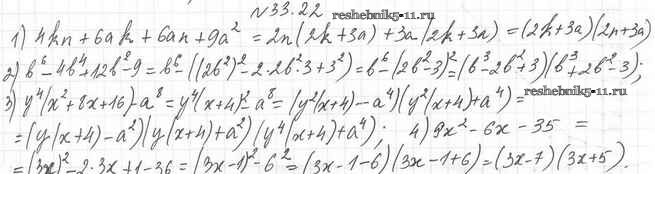 №33.22 reshebnik5-11.ru
1) 4kn + 6ak + 6an + 9a² = 2n(2k+3a) + 3a(2k+3a) = (2k+3a)(2n+3a)
2) b⁶ - 4b⁴ + 12b² - 9 = b⁶ - ((2b²)² - 2·2b²·3 + 3²) = b⁶ - (2b²-3)² = (b³ - 2b² + 3)(b³ + 2b² - 3);
reshebnik5-11.ru
3) y⁴(x² + 8x + 16) - a⁸ = y⁴(x+4)² - a⁸ = (y²(x+4) - a⁴)(y²(x+4) + a⁴) =
= (y(x+4) - a²)(y(x+4) + a²)(y⁴(x+4) + a⁴); 4) 9x² - 6x - 35 =
= (3x)² - 2·3x + 1 - 36 = (3x-1)² - 6² = (3x - 1 - 6)(3x - 1 + 6) = (3x-7)(3x+5).